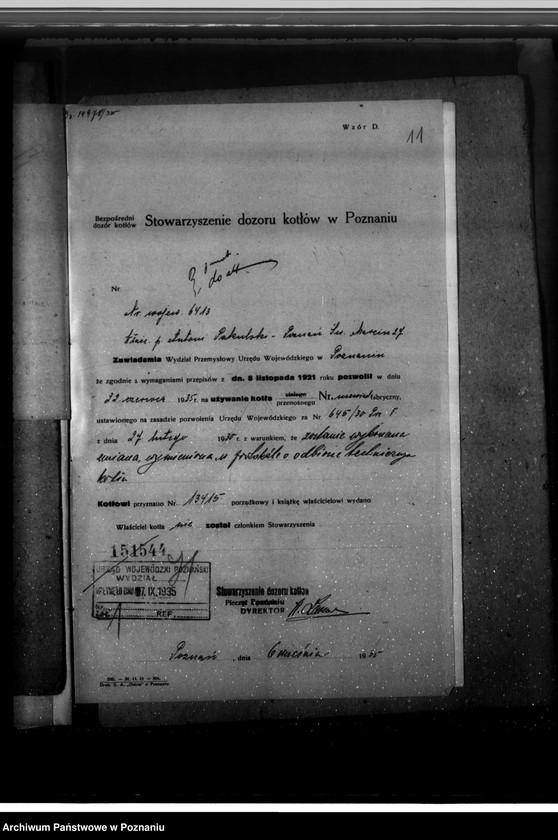 Wzór D.
11
Bezpośredni
dozór kotłów
Stowarzyszenie dozoru kotłów w Poznaniu
Nr.
Nr. wojew. 6413
Antoni Pakulski - Poznań Św. Marcin 27
Zawiadamia Wydział Przemysłowy Urzędu Wojewódzkiego w Poznaniu
że zgodnie z wymaganiami przepisów z dn. 8 listopada 1921 roku pozwolił w dniu
22 czerwca 1935 r. na używanie kotła stałego przenośnego Nr. fabryczny,
ustawionego na zasadzie pozwolenia Urzędu Wojewódzkiego za Nr 645/30
z dnia 27 lutego r. z warunkiem, że zostanie wykonana
zmiana, wymieniona w protokóle o odbiorze technicznym
kotła
Kotłowi przyznano Nr. 13415 porządkowy i książkę właścicielowi wydano
Właściciel kotła nie został członkiem Stowarzyszenia
151544
URZĄD WOJEWÓDZKI POZNAŃSKI
WYDZIAŁ
7. IX. 1935
REF.
Stowarzyszenie dozoru kotłów
w Poznaniu
DYREKTOR
Poznań, dnia 6 września 1935